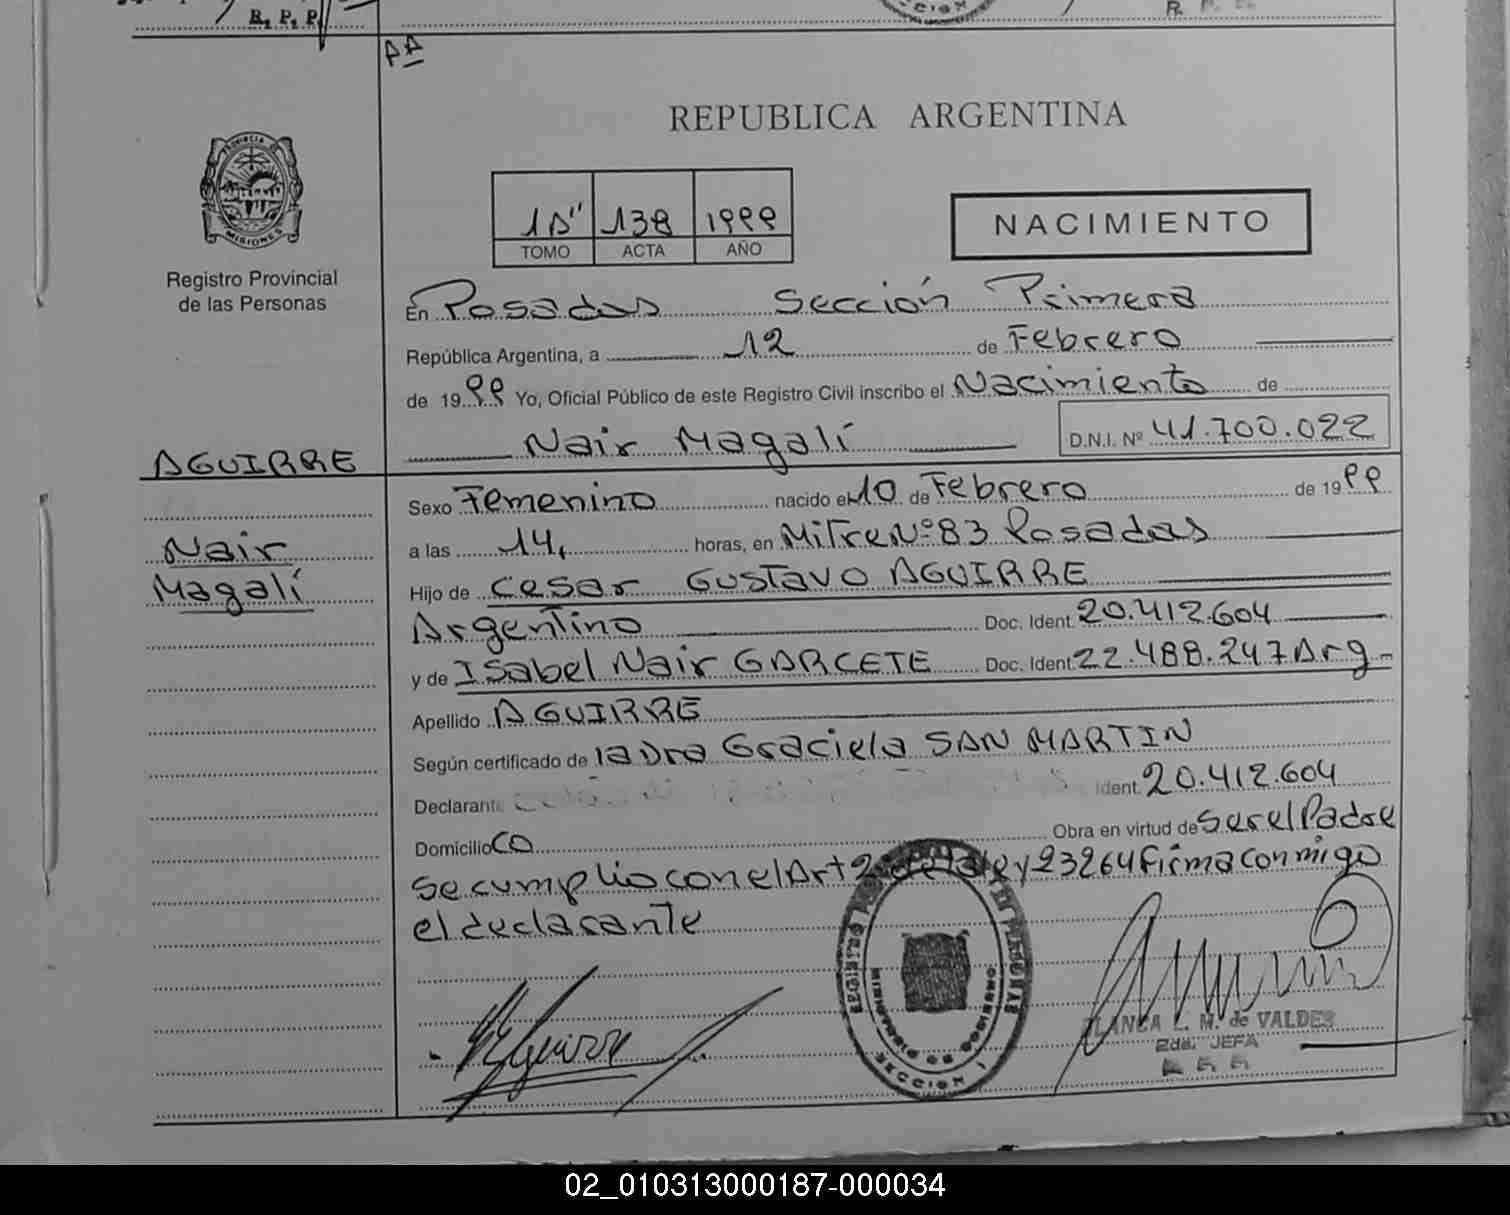 R. P. P.
R. P. P.
AA
REPUBLICA ARGENTINA
PROVINCIA DE MISIONES
Registro Provincial
de las Personas
1A" 138 1999
TOMO ACTA AÑO
NACIMIENTO
En Posadas Sección Primera
República Argentina, a 12 de Febrero
de 1999 Yo, Oficial Público de este Registro Civil inscribo el Nacimiento de
Nair Magalí D.N.I. Nº 41.700.022
AGUIRRE
Nair
Magalí
Sexo Femenino nacido el 10 de Febrero de 1999
a las 14, horas, en Mitre Nº 83 Posadas
Hijo de Cesar Gustavo AGUIRRE
Argentino Doc. Ident. 20.412.604
y de Isabel Nair GARCETE Doc. Ident. 22.488.247 Arg-
Apellido AGUIRRE
Según certificado de la Dra Graciela SAN MARTIN
Declarante Ident. 20.412.604
Domicilio Obra en virtud de Ser el Padre
Se cumplio con el Art 2 de la ley 23264 firma conmigo
el declarante
MINISTERIO DE GOBIERNO
SECCION 1
BLANCA L. M. de VALDES
2da. JEFA
02_010313000187-000034